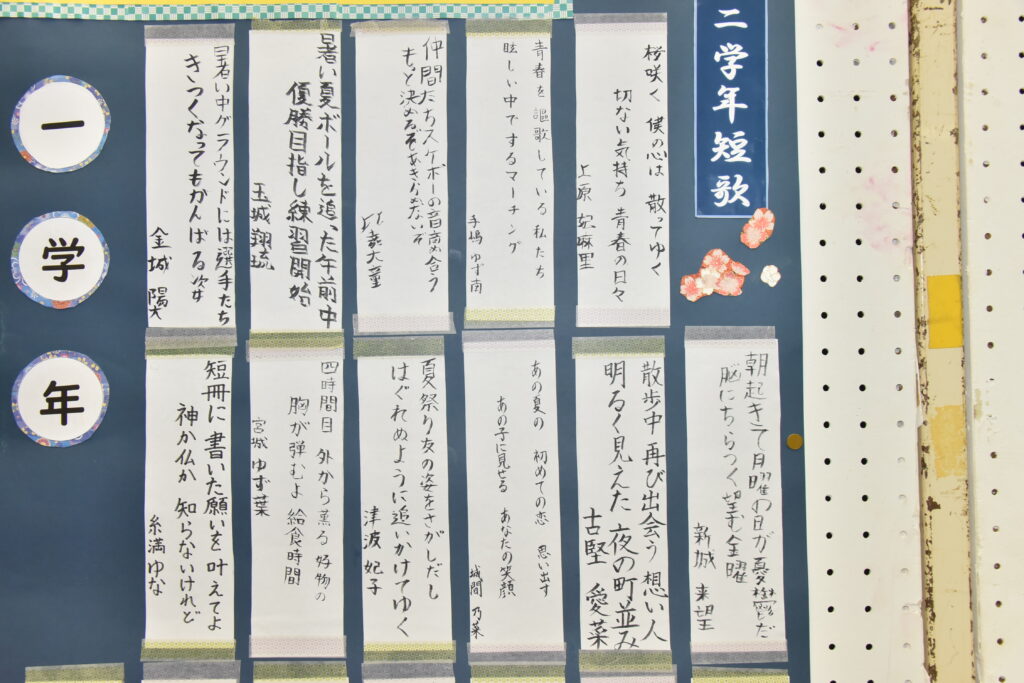 二学年短歌
桜咲く 僕の心は 散ってゆく
切ない気持ち 青春の日々
上原 妃麻里
青春を 謳歌している 私たち
眩しい中でするマーチング
手嶋 ゆず南
仲間たちスケボーの音高め合う
もっと決めるぞあきらめないぞ
大菫
暑い夏ボールを追った午前中
優勝目指し練習開始
玉城翔琉
暑い中グラウンドには選手たち
きつくなってもがんばる次女
金城 陽大
朝起きて月曜の日が憂鬱だ
脳にちらつく望む金曜
新城 来望
散歩中 再び出会う 想い人
明るく見えた 夜の町並み
古堅 愛菜
あの夏の 初めての恋 思い出す
あの子に見せる あなたの笑顔
城間 乃菜
夏祭り友の姿をさがしだし
はぐれぬように追いかけてゆく
津波 妃子
四時間目 外から薫る 好物の
胸が弾むよ 給食時間
宮城 ゆず葉
短冊に 書いた願いを 叶えてよ
神か仏か 知らないけれど
糸満ゆな
一学年